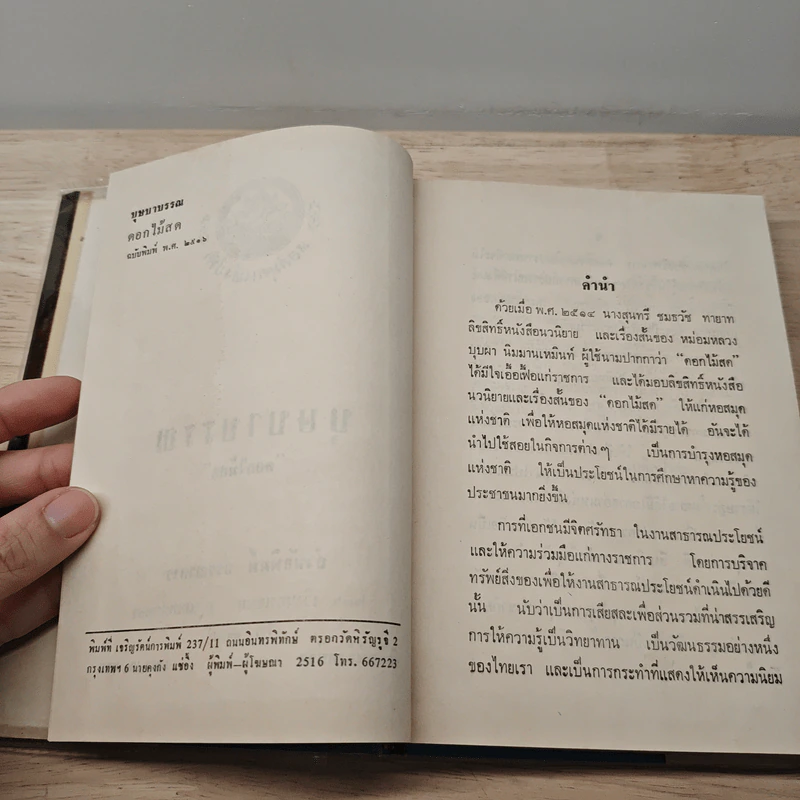 บุษบาบรรณ
ดอกไม้สด
ฉบับพิมพ์ พ.ศ. ๒๕๑๖
พิมพ์ที่ เจริญรัตน์การพิมพ์ 237/11 ถนนอินทรพิทักษ์ ตรอกรัตพิรัญรูจี 2
กรุงเทพฯ 6 นายคุงกัง แซ่อึ้ง ผู้พิมพ์–ผู้โฆษณา 2516 โทร. 667223
คำนำ
ด้วยเมื่อ พ.ศ. ๒๕๑๔ นางสุนทรี ชมธวัช ทายาท
ลิขสิทธิ์หนังสือนวนิยาย และเรื่องสั้นของ หม่อมหลวง
บุบผา นิมมานเหมินท์ ผู้ใช้นามปากกาว่า “ดอกไม้สด”
ได้มีใจเอื้อเฟื้อแก่ราชการ และได้มอบลิขสิทธิ์หนังสือ
นวนิยายและเรื่องสั้นของ “ดอกไม้สด” ให้แก่หอสมุด
แห่งชาติ เพื่อให้หอสมุดแห่งชาติได้มีรายได้ อันจะได้
นำไปใช้สอยในกิจการต่าง ๆ เป็นการบำรุงหอสมุด
แห่งชาติ ให้เป็นประโยชน์ในการศึกษาหาความรู้ของ
ประชาชนมากยิ่งขึ้น
การที่เอกชนมีจิตศรัทธา ในงานสาธารณประโยชน์
และให้ความร่วมมือแก่ทางราชการ โดยการบริจาค
ทรัพย์สิ่งของเพื่อให้งานสาธารณประโยชน์ดำเนินไปด้วยดี
นั้น นับว่าเป็นการเสียสละเพื่อส่วนรวมที่น่าสรรเสริญ
การให้ความรู้เป็นวิทยาทาน เป็นวัฒนธรรมอย่างหนึ่ง
ของไทยเรา และเป็นการกระทำที่แสดงให้เห็นความนิยม